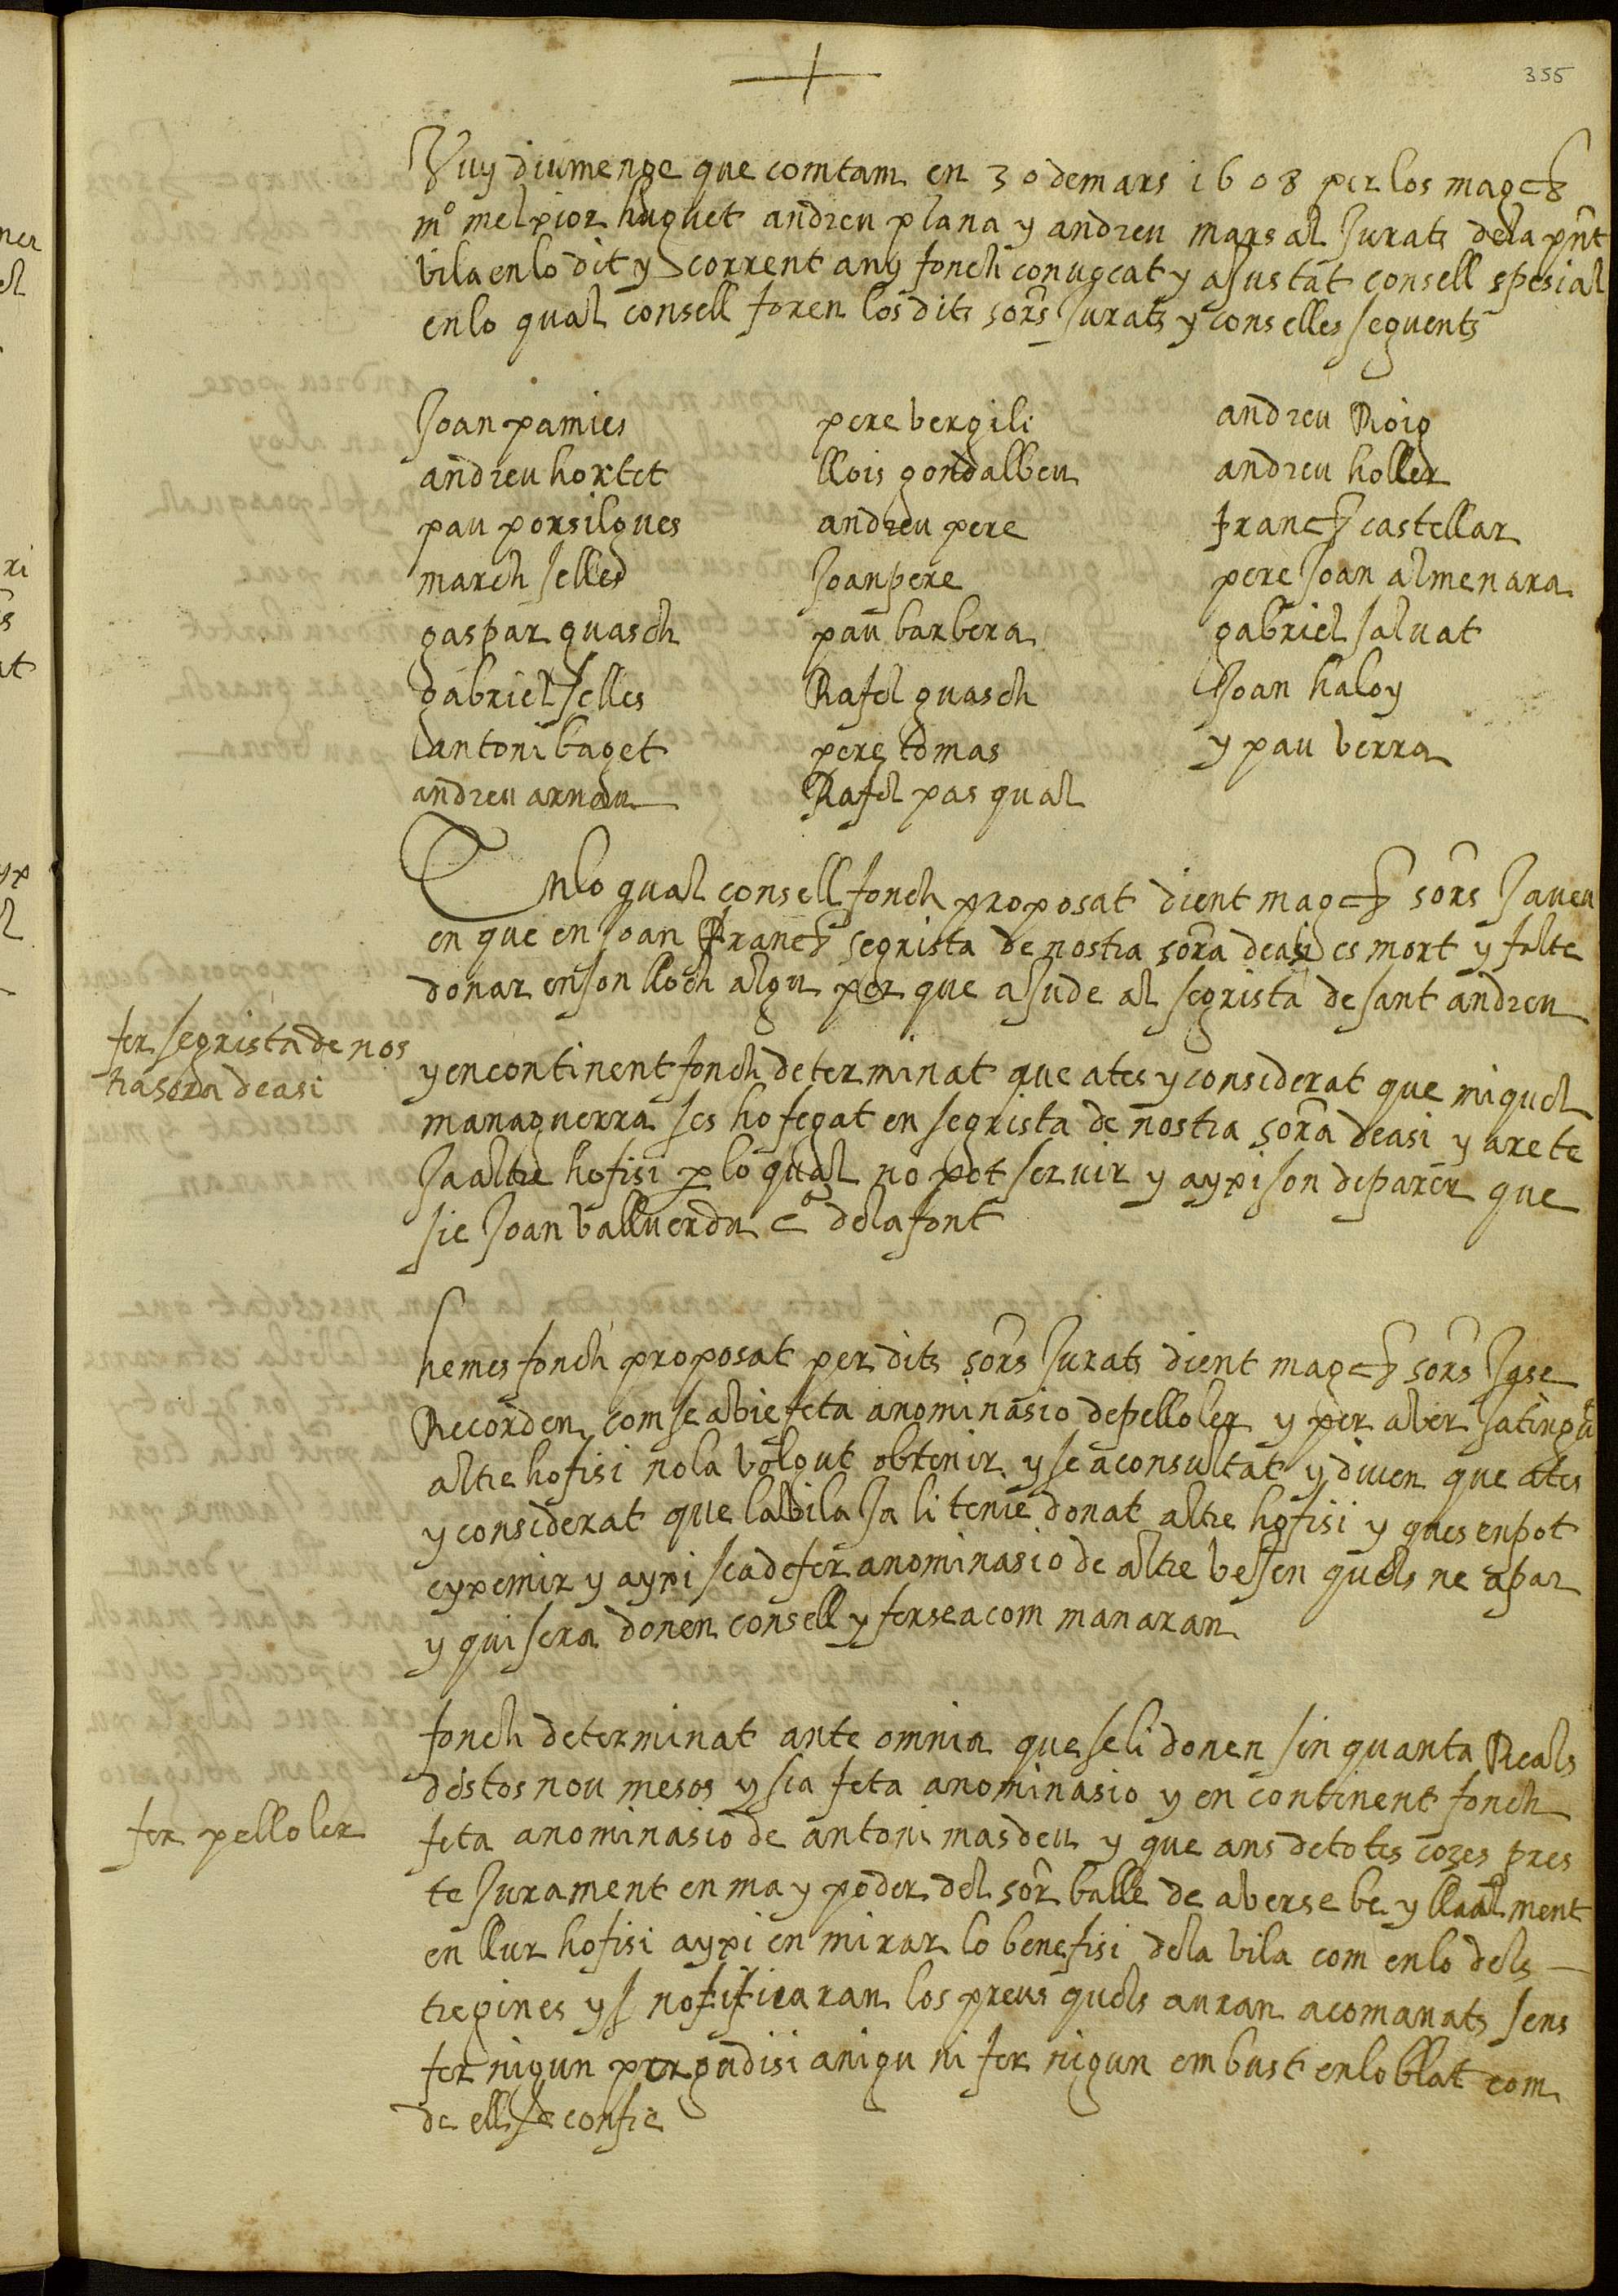 355
Vuy diumenge que comtam en 30 de mars 1608 per los magchs
mº melxior huguet andreu plana y andreu marsal Jurats dela pnt
vila en lo dit y corrent any fonch convocat y ajustat consell spesial
en lo qual consell foren los dits sors Jurats y conselles seguents
Joan pamies
andreu hortet
pau porsilgues
march selles
gaspar guasch
gabriel selles
antoni baget
andreu arnau
pere bergili
llois gondalbeu
andreu pere
Joan pere
pau barbera
Rafel guasch
pere tomas
Rafel pasqual
andreu Roig
andreu holler
franch castellar
pere Joan almenara
gabriel salvat
Joan haloy
y pau verra
Enlo qual consell fonch proposat dient magchs sors Ja veu
en que en Joan franch segrista de nostra sora deasi es mort y falte
donar en son lloch algu per que ajude al segrista de sant andreu
fer segrista de nos
tra sora deasi
y encontinent fonch determinat que ates y considerat que miquel
managuerra ses hofegat en segrista de nostra sora deasi y are te
Ja altre hofisi p lo qual no pot servir y aypi son de parer que
sie Joan vallverdu cº dela font
hemes fonch proposat per dits sors Jurats dient magchs sors Ja se
Recorden com se abie feta anominasio de pelloler y per aver Ja tingu
altre hofisi nola volgut obtenir y se a consultat y diuen que ates
y considerat que la vila Ja li tenie donat altre hofisi y ques en pot
eypemir y aypi sea de fer anominasio de altre vesen quels ne apar
y qui sera donen consell y fersea com manaran
fonch determinat ante omnia que se li donen sinquanta Reals
destos nou mesos y sia feta anominasio y en continent fonch
fer pelloler
feta anominasio de antoni masdeu y que ans de totes cozes pres
te Jurament en ma y poder del sor balle de averse be y llaalment
en llur hofisi aypi en mirar lo benefisi dela vila com en lo dels
tregines y notificaran los preus quels auran acomanats sens
fer nigun pergudisi anigu ni fer nigun embust en lo blat com
de ell se confie